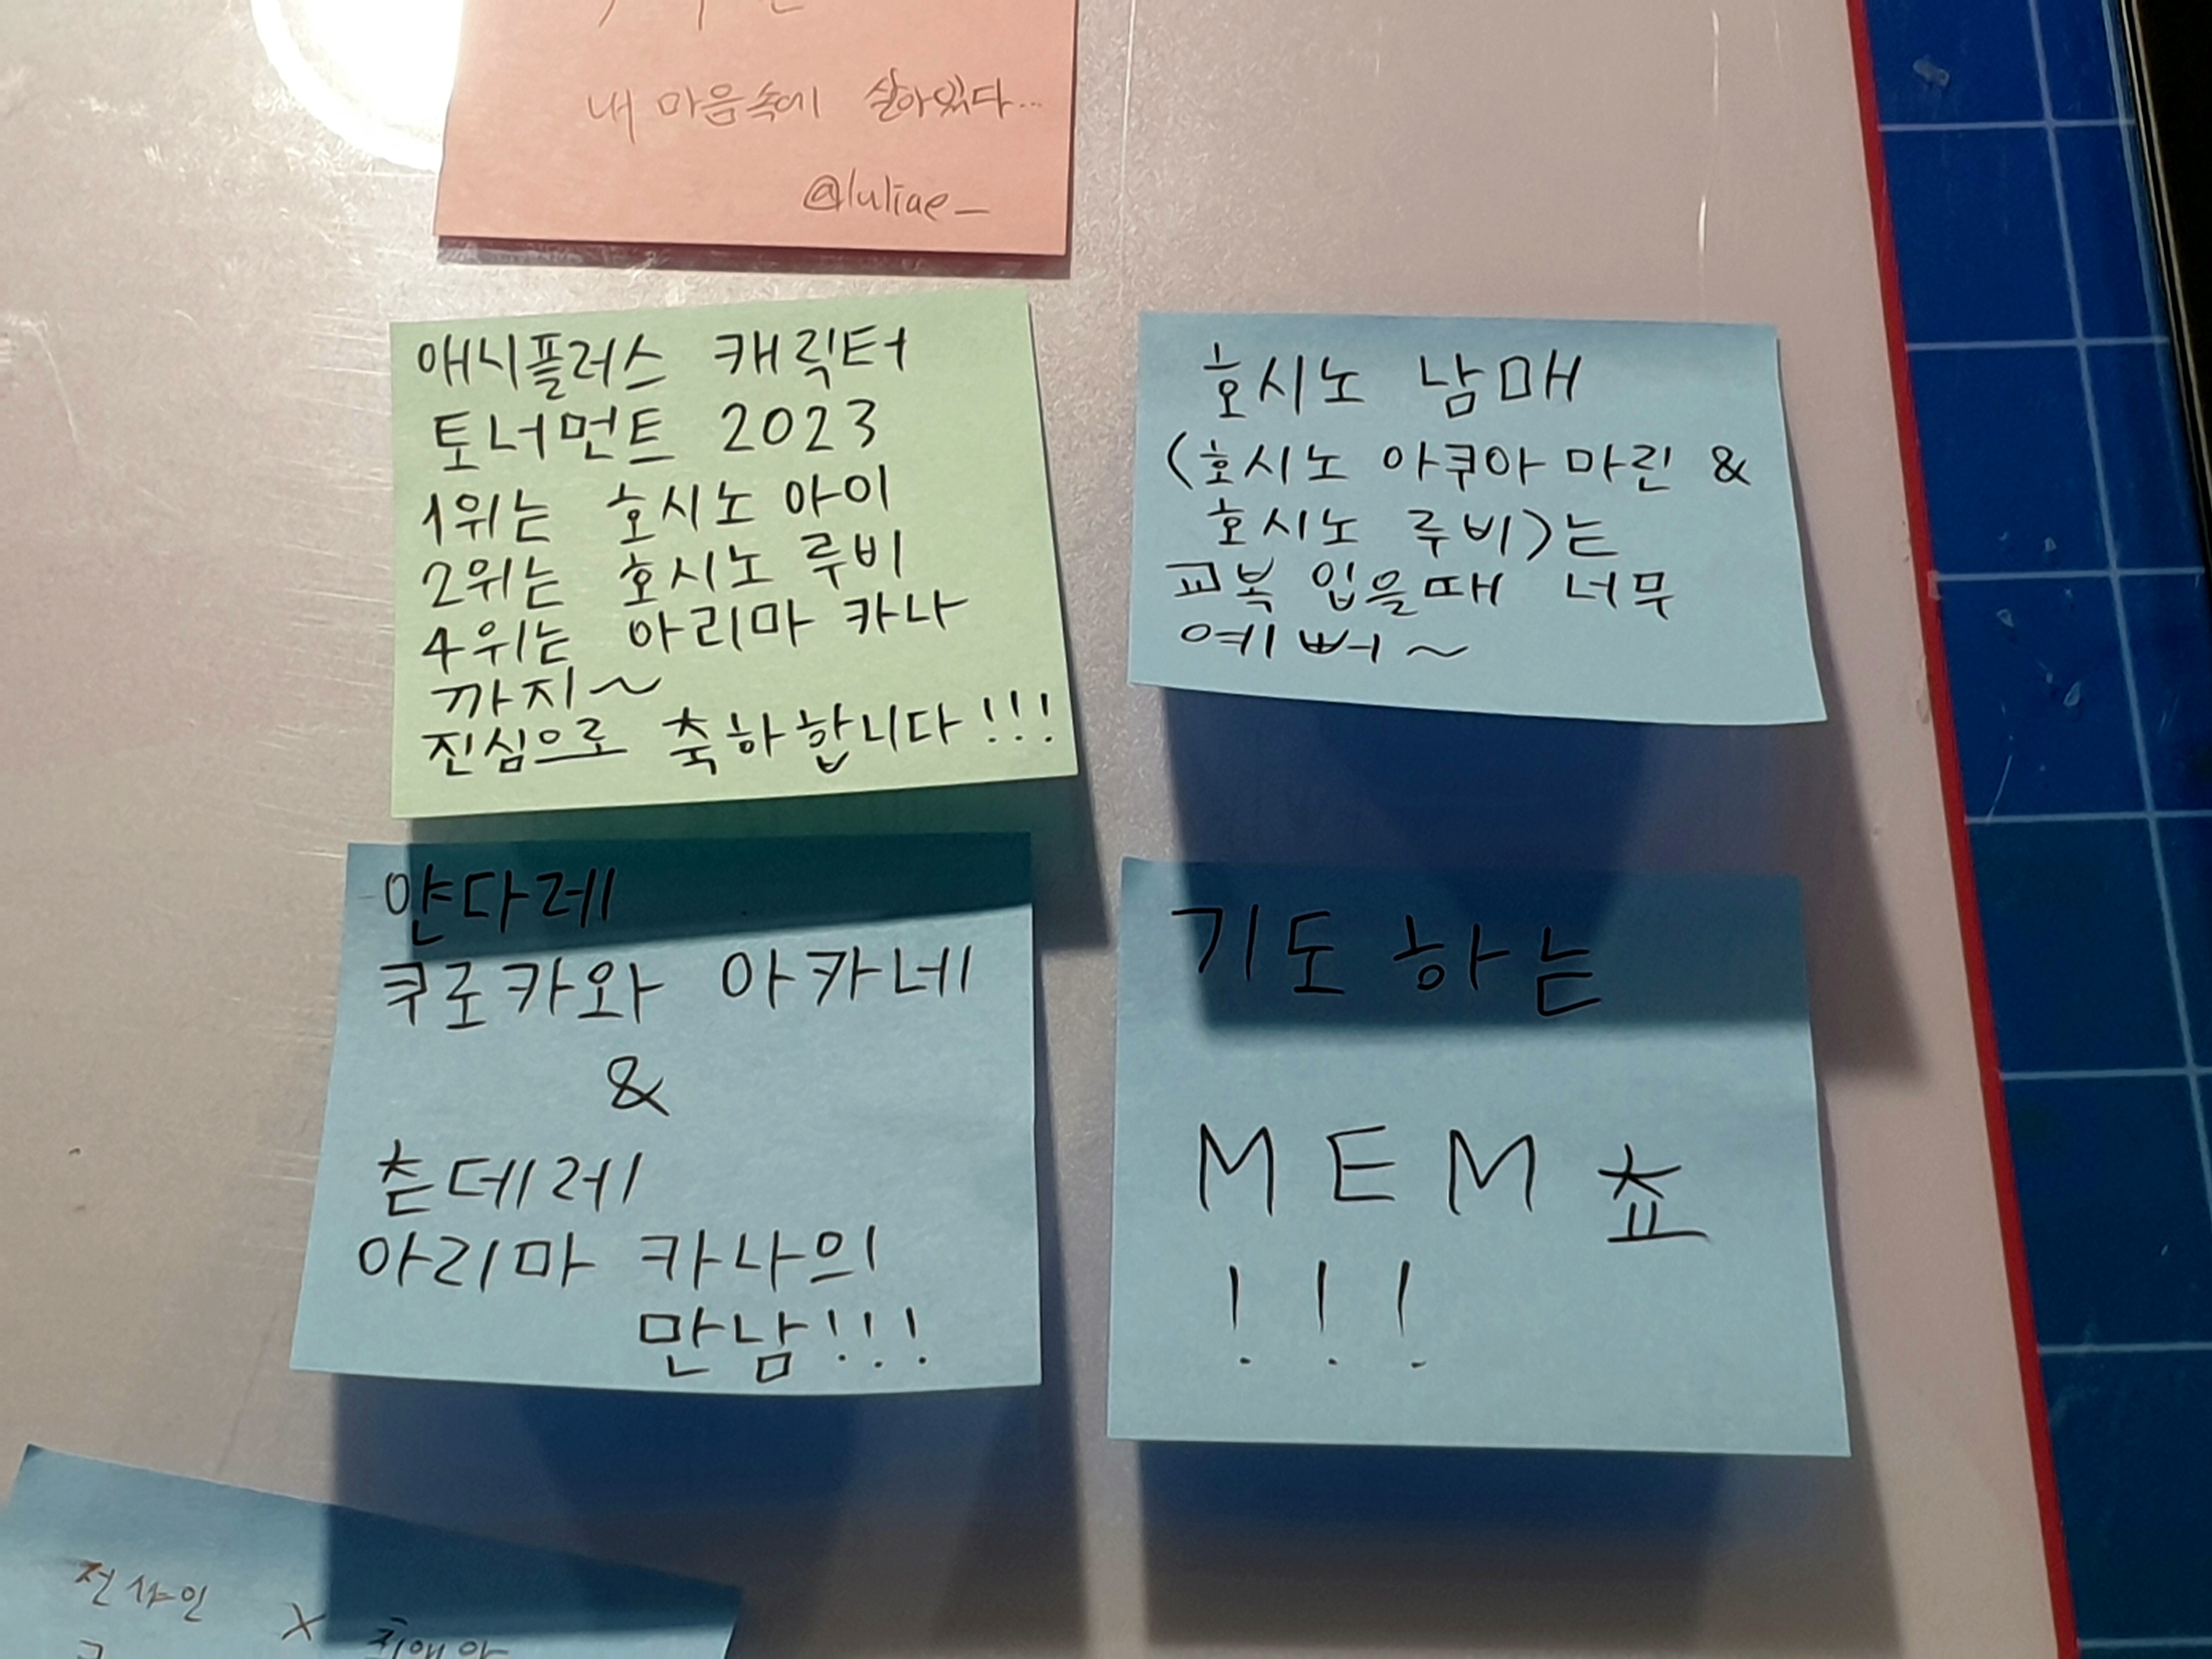 내 마음속에 살아있다...
@luliae_
애니플러스 캐릭터
토너먼트 2023
1위는 호시노 아이
2위는 호시노 루비
4위는 아리마 카나
까지~
진심으로 축하합니다!!!
호시노 남매
(호시노 아쿠아마린 &
호시노 루비)는
교복 입을때 너무
예뻐~
얀다레
쿠로카와 아카네
&
츤데레
아리마 카나의
만남!!!
기도하는
MEM쵸
!!!
X